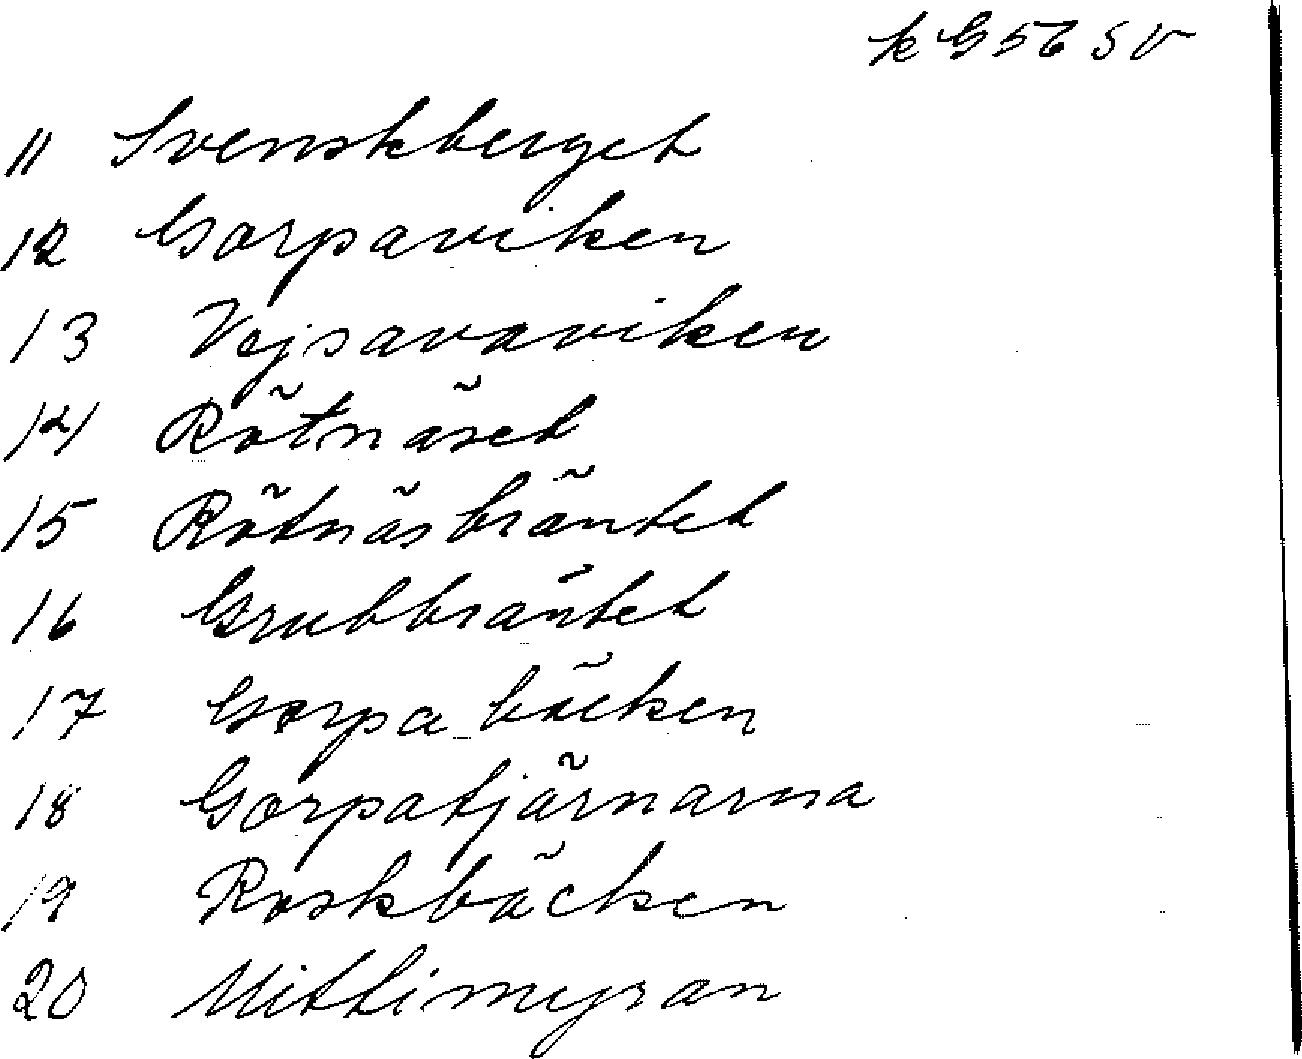 k G 56 SV
11 Svenskberget
12 Gorpaviken
13 Vejsavaviken
14 Rötnäset
15 Rötnäsbräntet
16 Grubbräntet
17 Gorpabäcken
18 Gorpatjärnarna
19 Roskbäcken
20 Mittimyran